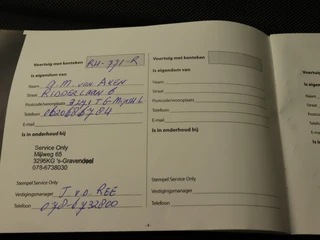 Voertuig met kenteken RH-771-R
Is eigendom van
Naam A.M. van Aken
Straat Ridderlaan 6
Postcode/woonplaats
Telefoon
E-mail
Is in onderhoud bij
Service Only
Mijlweg 65
3295KG 's-Gravendeel
078-6738030
Stempel Service Only
Vestigingsmanager J v.d. Ree
Telefoon 078-6732800
Voertuig met kenteken
Is eigendom van
Naam
Straat
Postcode/woonplaats
Telefoon
E-mail
Is in onderhoud bij
Stempel Service Only
Vestigingsmanager
Telefoon